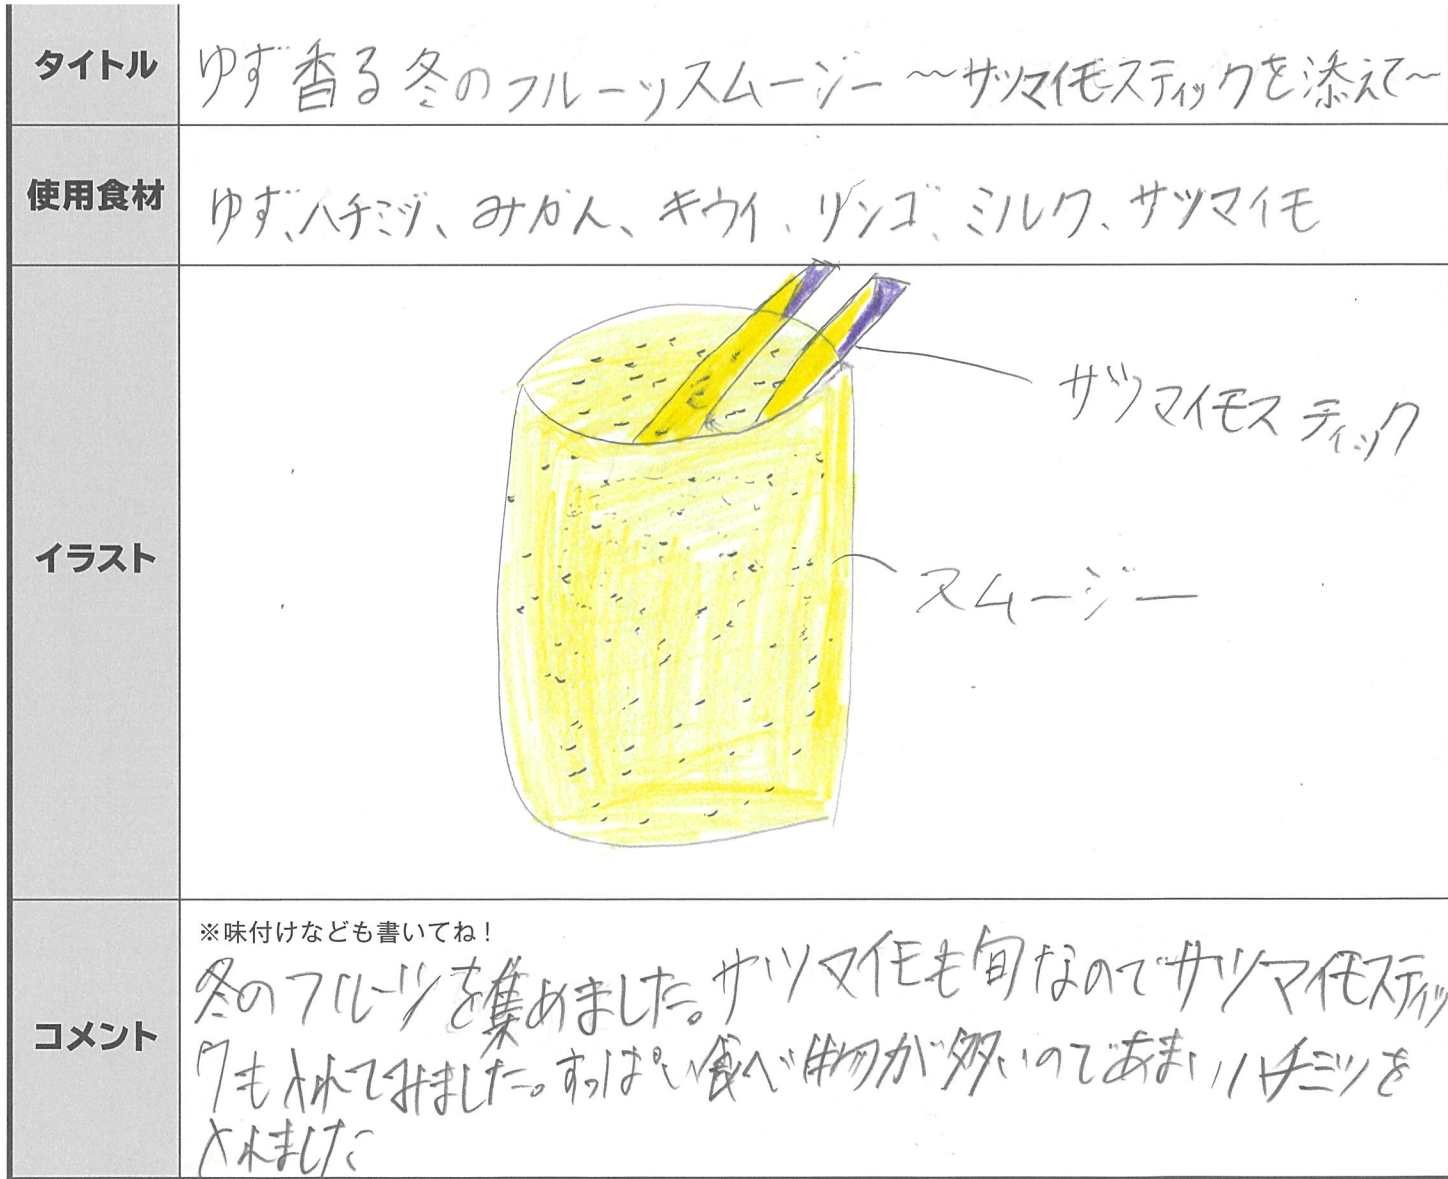 タイトル
ゆず香る冬のフルーツスムージー 〜サツマイモスティックを添えて〜
使用食材
ゆず、ハチミツ、みかん、キウイ、リンゴ、ミルク、サツマイモ
イラスト
サツマイモスティック
スムージー
コメント
※味付けなども書いてね！
冬のフルーツを集めました。サツマイモも旬なのでサツマイモスティッ
クも入れてみました。すっぱい食べ物が多いのであまいハチミツを
入れました